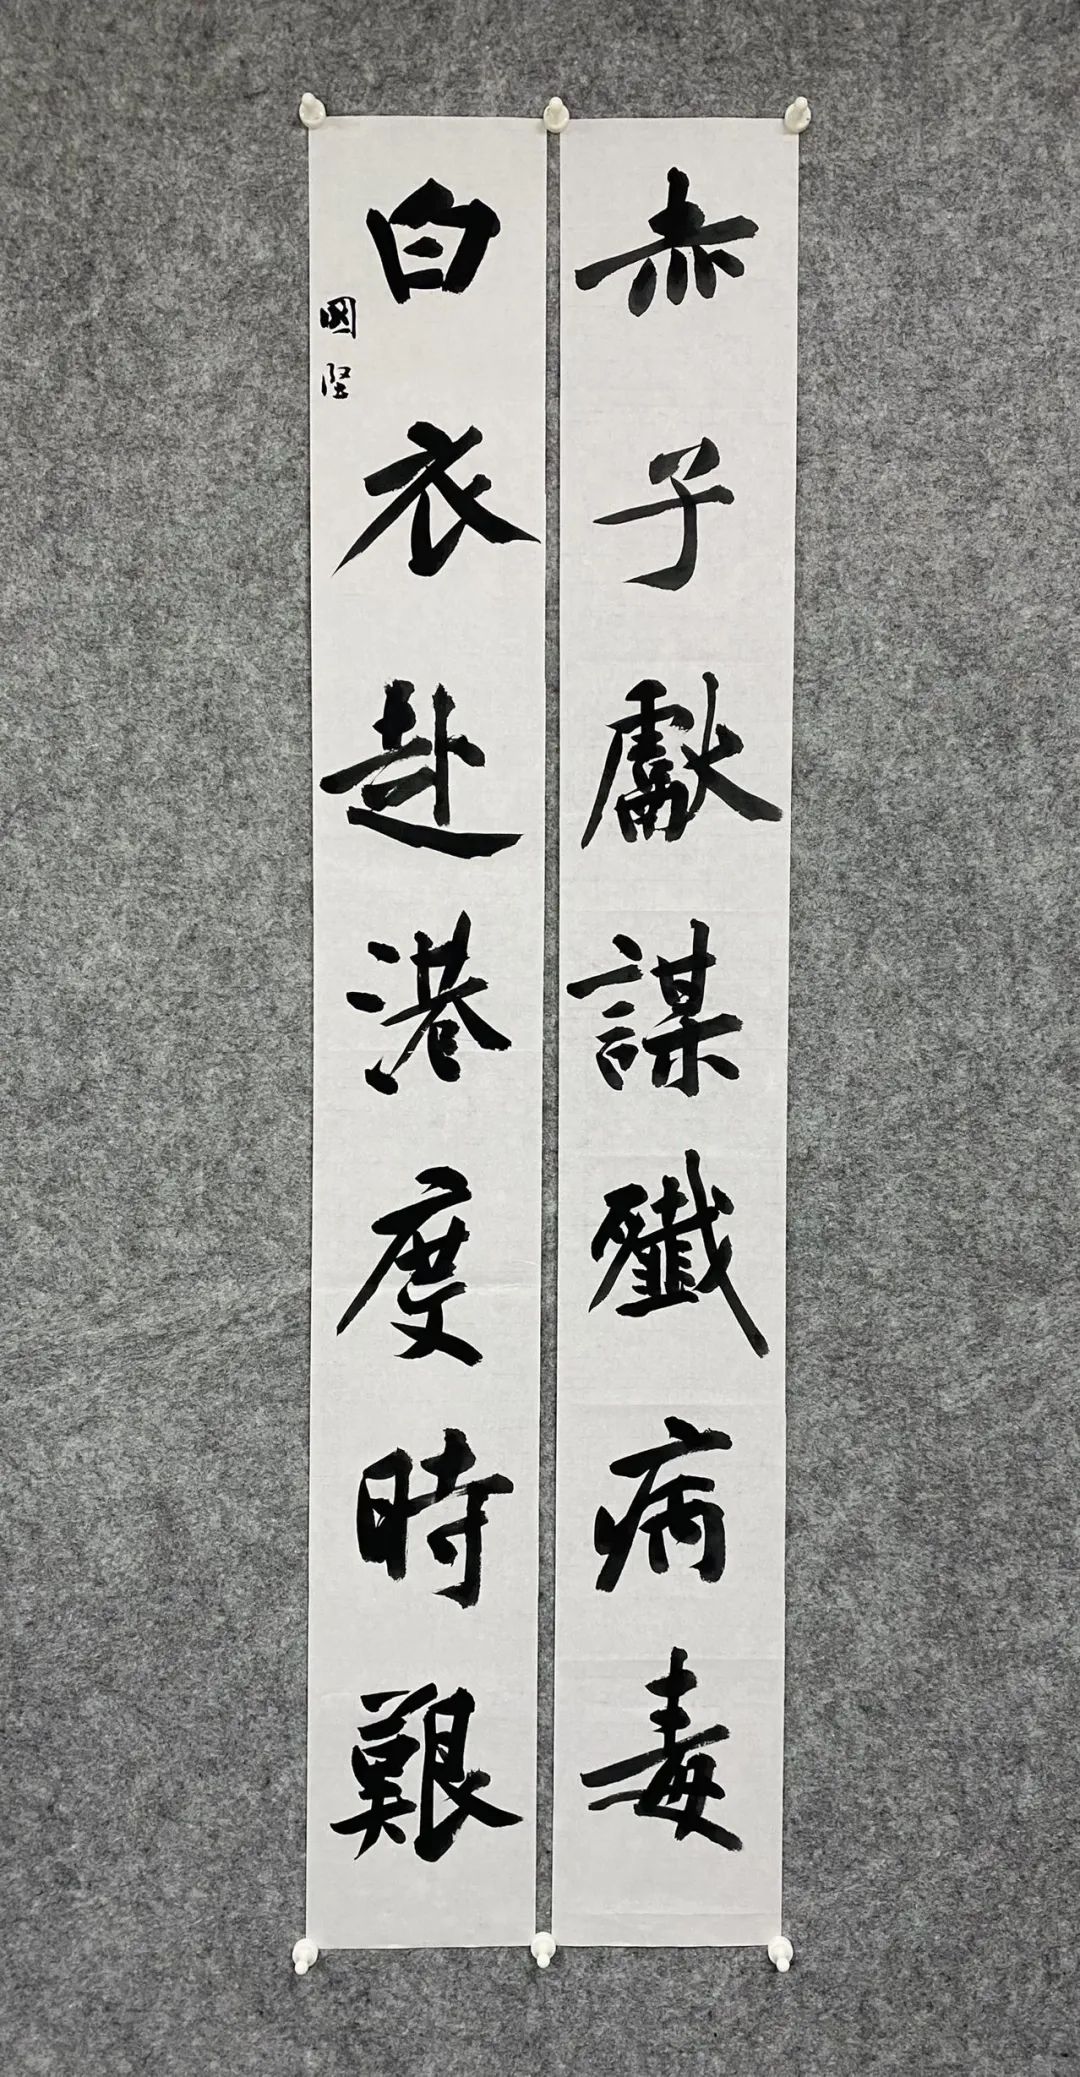 赤子獻謀殲病毒
白衣赴港度時艱
國堅